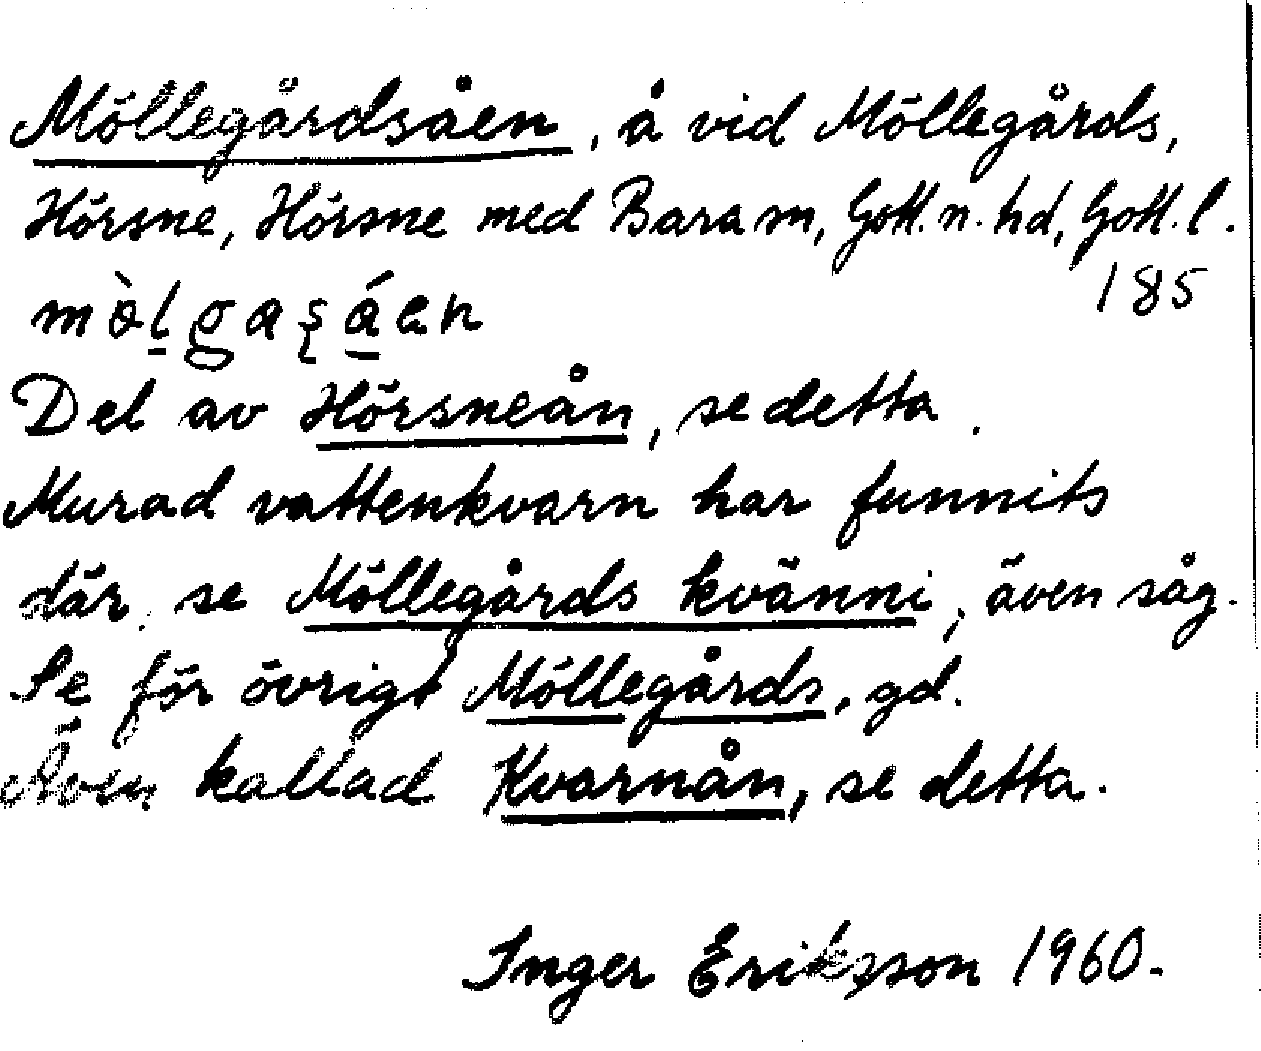 Möllegårdsåen, å vid Möllegårds,
Hörsne, Hörsne med Bara sn, Gotl. n. hd, Gotl. l.
185
Del av Hörsneån, se detta.
Murad vattenkvarn har funnits
där, se Möllegårds kvänni, även såg.
Se för övrigt Möllegårds, gd.
Även kallad Kvarnån, se detta.
Inger Eriksson 1960.